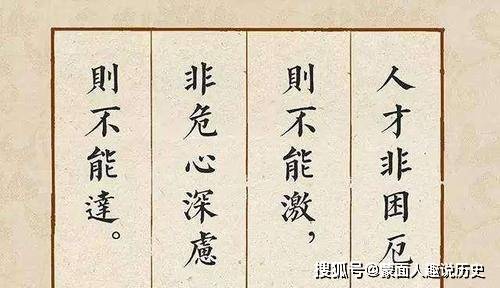 人才非困厄
則不能激，
非危心深慮
則不能達。
搜狐号@蒙面人趣说历史